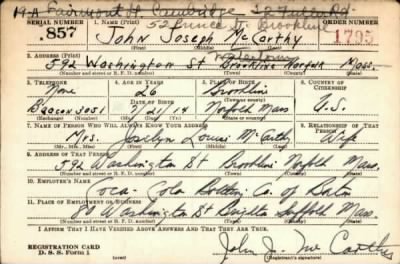 19A Fairmont St Cambridge - 32 Fuller Rd.
SERIAL NUMBER 1. NAME (Print) 52 Prince St. Brookline ORDER NUMBER
857 John Joseph McCarthy 1795
(First) (Middle) (Last)
2. ADDRESS (Print) Watertown
592 Washington St Brookline Norfolk Mass.
(Number and street or R. F. D. number) (Town) (County) (State)
3. TELEPHONE 4. AGE IN YEARS 5. PLACE OF BIRTH 6. COUNTRY OF CITIZENSHIP
None 26 Brookline
DATE OF BIRTH
Beacon 3051 14 Norfolk Mass U.S.
(Exchange) (Number) (Mo.) (Day) (Yr.) (State or country)
7. NAME OF PERSON WHO WILL ALWAYS KNOW YOUR ADDRESS 8. RELATIONSHIP OF THAT PERSON
Mrs. Louise McCarthy Wife
(Mr., Mrs., Miss) (First) (Middle) (Last)
9. ADDRESS OF THAT PERSON
592 Washington St Brookline Norfolk Mass.
(Number and street or R. F. D. number) (Town) (County) (State)
10. EMPLOYER'S NAME
Coca-Cola Bottling Co. of Boston
11. PLACE OF EMPLOYMENT OR BUSINESS
Washington St Brighton Suffolk Mass.
(Number and street or R. F. D. number) (Town) (County) (State)
I AFFIRM THAT I HAVE VERIFIED ABOVE ANSWERS AND THAT THEY ARE TRUE.
REGISTRATION CARD
D. S. S. Form 1 John J. McCarthy
(Registrant's signature)